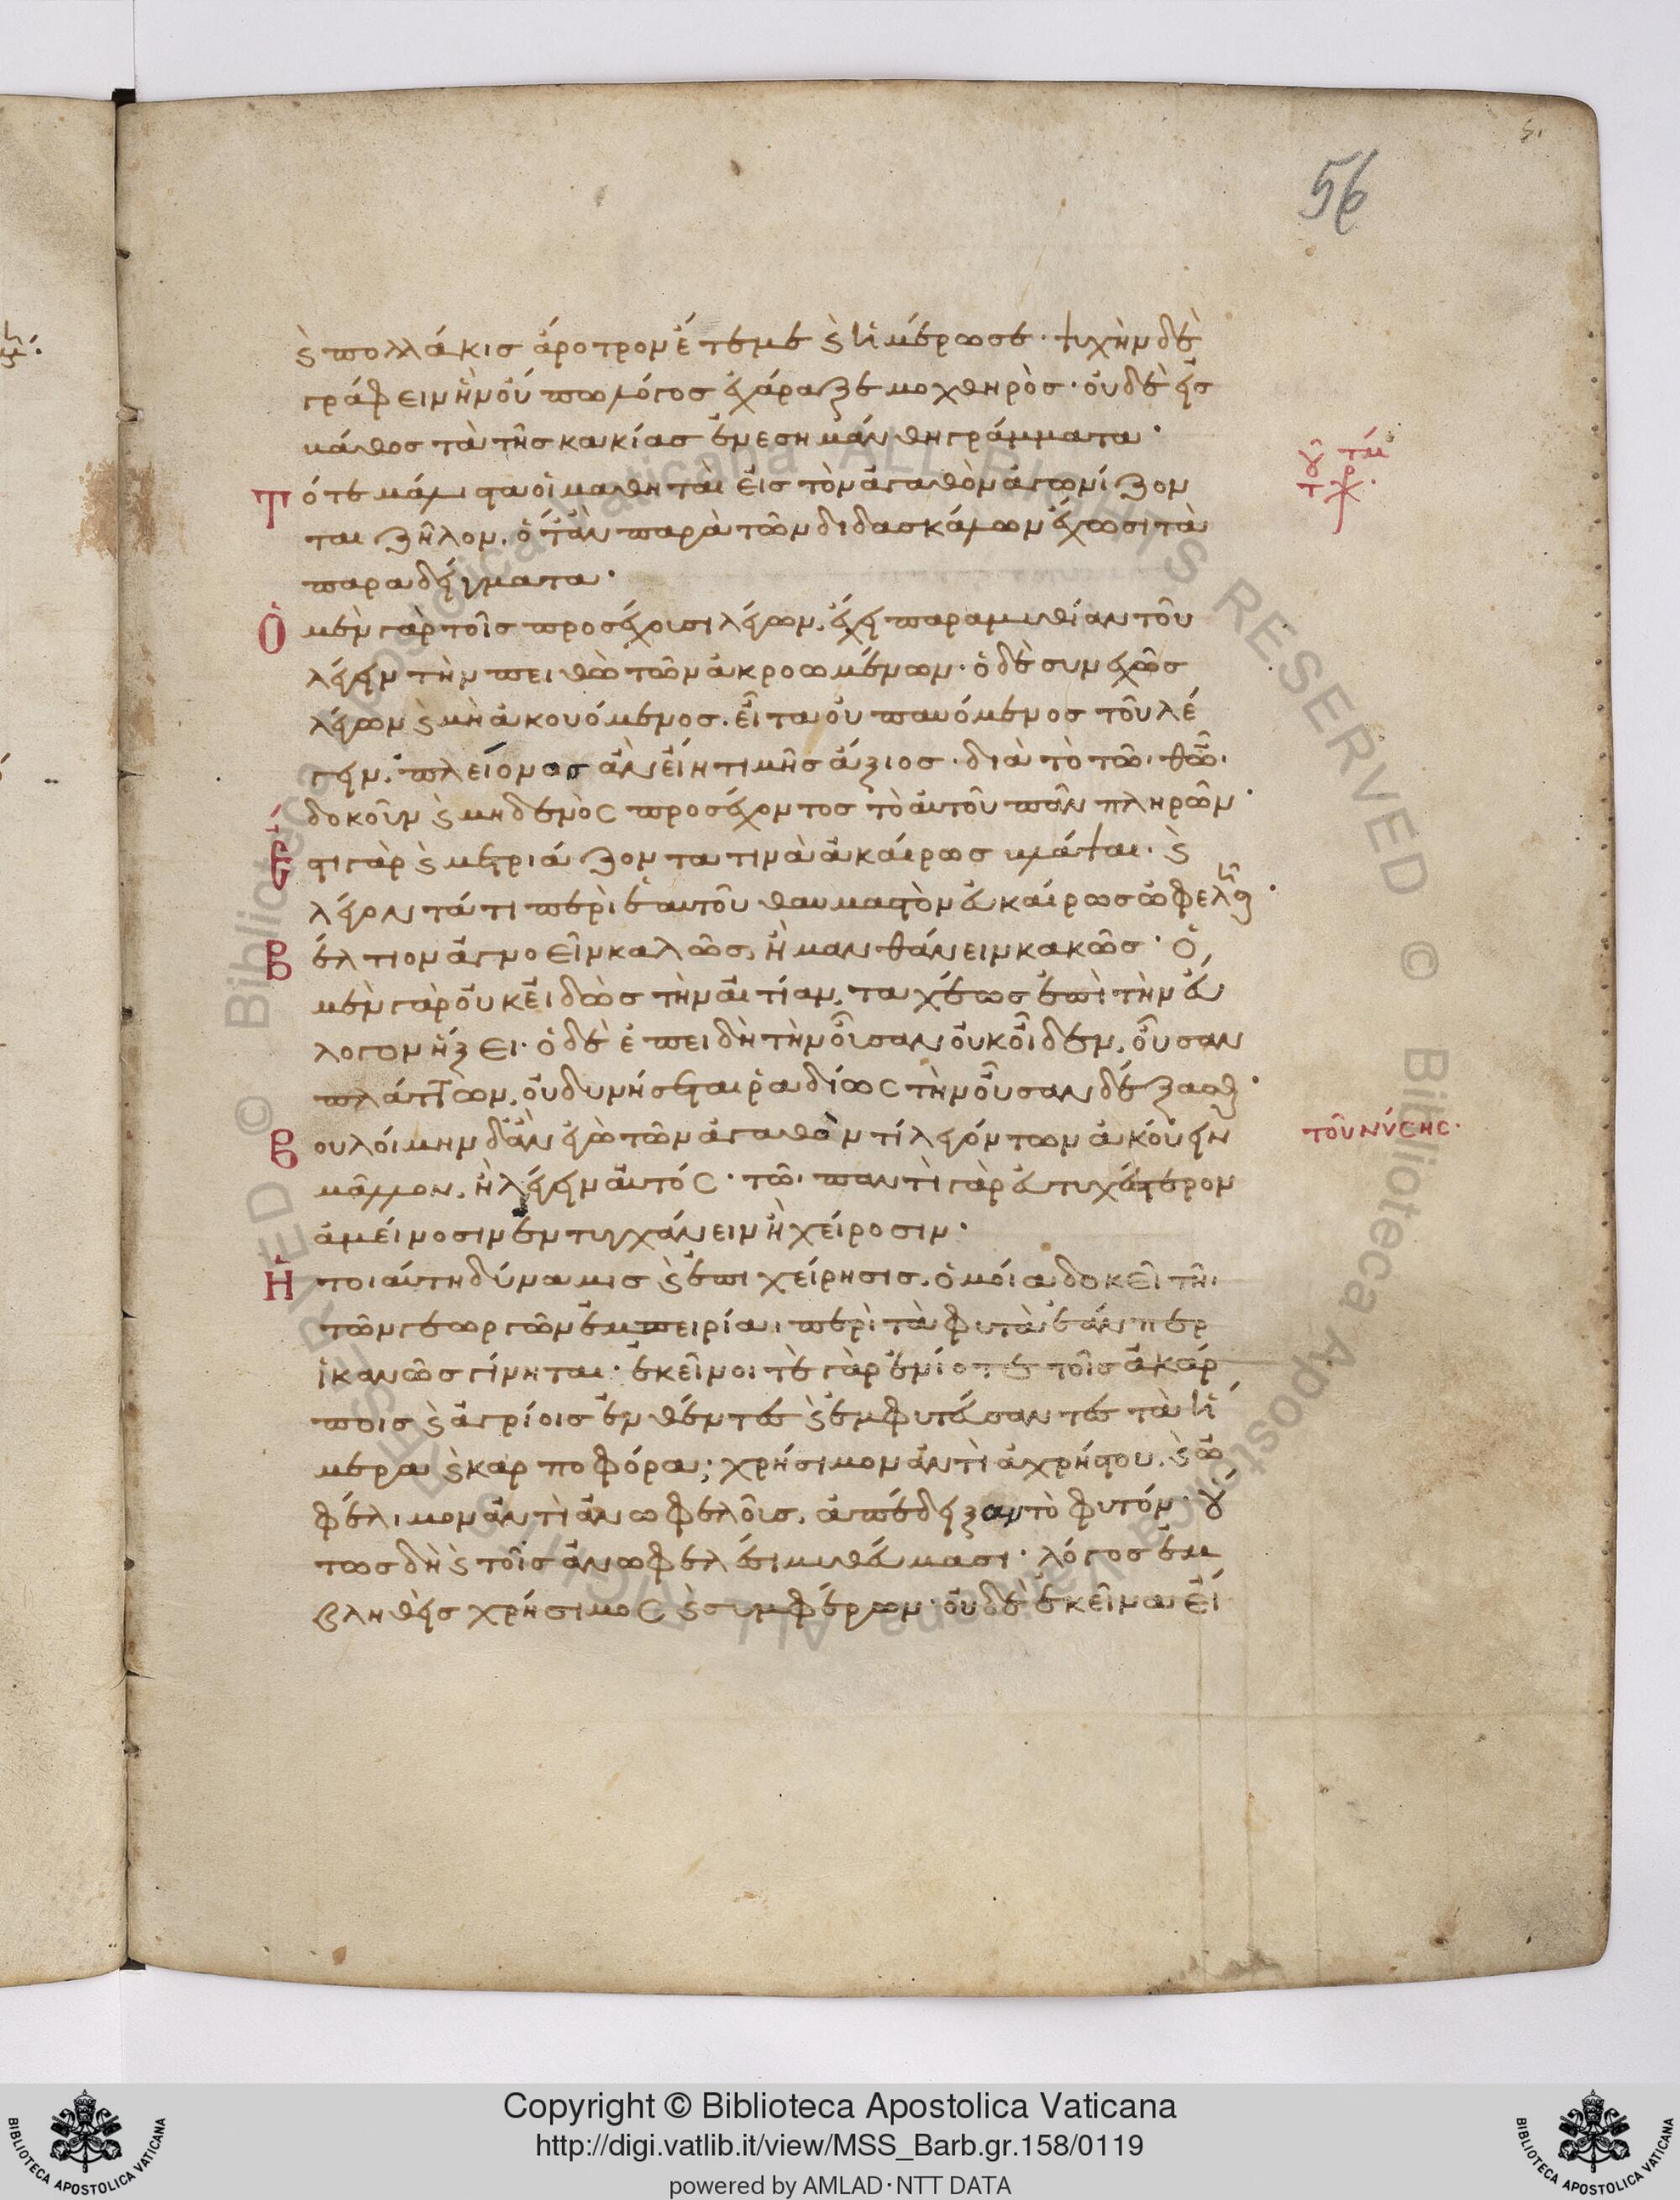 56
καὶ πολλάκις ἄροτρον ἔτεμε καὶ ἡμέρωσε· ψυχὴν δὲ
γράφειν ἣν οὔπω λόγος ἐχάραξε μοχθηρὸς· οὐδὲ εἰς
βάθος τὰ τῆς κακίας ἐνεσημάνθη γράμματα·
Τότε μάλιστα οἱ μαθηταὶ εἰς τὸν ἀγαθὸν ἀγωνίζον
ται ζῆλον, ὅταν παρὰ τῶν διδασκάλων ἔχωσι τὰ
παραδείγματα·
Ὁ μὲν γὰρ τοῖς προσέχουσι λέγων, ἔχει παραμυθίαν τοῦ
λέγειν τὴν πειθὼ τῶν ἀκροωμένων· ὁ δὲ συνεχῶς
λέγων καὶ μὴ ἀκουόμενος, εἶτα οὐ παυόμενος τοῦ λέ
γειν, πλείονος ἂν εἴη τιμῆς ἄξιος· διὰ τὸ τῶ θῶ
δοκοῦν καὶ μηδενὸς προσέχοντος τὸ αὐτοῦ πᾶν πληρῶν·
Ἔστι γὰρ καὶ μετριάζοντα τινὰ ἀκαίρως βλάψαι· καὶ
λέγοντά τι περὶ ἑαυτοῦ θαυμαστὸν εὐκαίρως ὠφελῆσαι·
Βέλτιον ἀγνοεῖν καλῶς, ἢ μανθάνειν κακῶς· ὁ
μὲν γὰρ οὐκ εἰδὼς τὴν αἰτίαν, ταχέως ἐπὶ τὴν εὔ
λογον ἥξει· ὁ δὲ ἐπειδὴ τὴν οὖσαν οὐκ οἶδεν, οὐσαν
πλάττων, οὐ δυνήσεται ῥαδίως τὴν οὖσαν δέξασθαι·
Βουλοίμην δ' ἂν ἐγὼ τῶν ἀγαθόν τι λεγόντων ἀκούειν
μᾶλλον, ἢ λέγειν αὐτός· τῶ παντὶ γὰρ εὐτυχέστερον
ἀμείνοσιν ἐντυγχάνειν ἢ χείροσιν·
Ἡ τοιαύτη δύναμις καὶ ἐπιχείρησις, ὁμοία δοκεῖ τῆ
τῶν γεωργῶν ἐμπειρία περὶ τὰ φυτὰ ἐάνπερ
ἱκανῶς γίνηται· ἐκεῖνοί τε γὰρ ἐνίοτε τοῖς ἀκάρ
ποις καὶ ἀγρίοις ἐνθέντες καὶ ἐμφυτεύσαντες τὰ ἥ
μερα καὶ καρποφόρα, χρήσιμον ἀντὶ ἀχρήστου, καὶ ὠ
φέλιμον ἀντὶ ἀνωφελοῦς, ἀπέδειξαν τὸ φυτόν· οὕ
τως δὴ καὶ τοῖς ἀνωφελέσι μυθεύμασι· λόγος ἐμ
βληθεὶς χρήσιμος καὶ συμφέρων· οὐδὲ ἐκεῖνα εἴ
τοῦ νύσης·
Copyright © Biblioteca Apostolica Vaticana
http://digi.vatlib.it/view/MSS_Barb.gr.158/0119
powered by AMLAD·NTT DATA
BIBLIOTECA APOSTOLICA VATICANA
BIBLIOTECA APOSTOLICA VATICANA